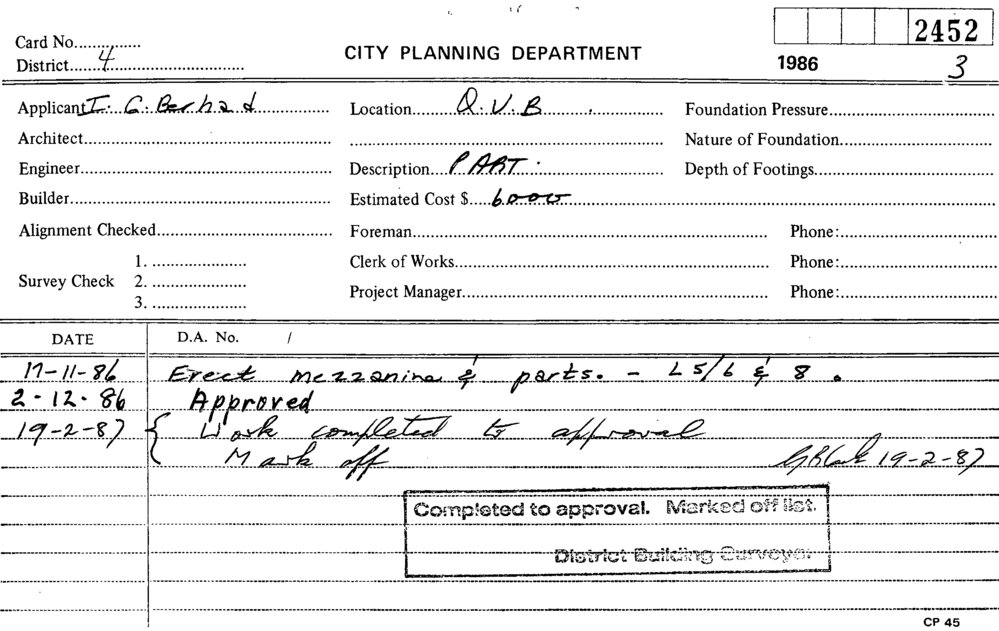 2452
Card No.
CITY PLANNING DEPARTMENT
District 4
1986
3
Applicant I. G. Berhad
Location Q.V.B.
Foundation Pressure
Architect
Nature of Foundation
Engineer
Description PART.
Depth of Footings
Builder
Estimated Cost $ 6000
Alignment Checked
Foreman
Phone:
1.
Clerk of Works
Phone:
Survey Check 2.
Project Manager
Phone:
3.
DATE
D.A. No. /
17-11-86 Erect mezzanine & parts. - L5/6 & 8.
2-12-86 Approved
19-2-87 { Work completed to approval
Mark off
19-2-87
Completed to approval. Marked off list.
District Building Surveyor
CP 45